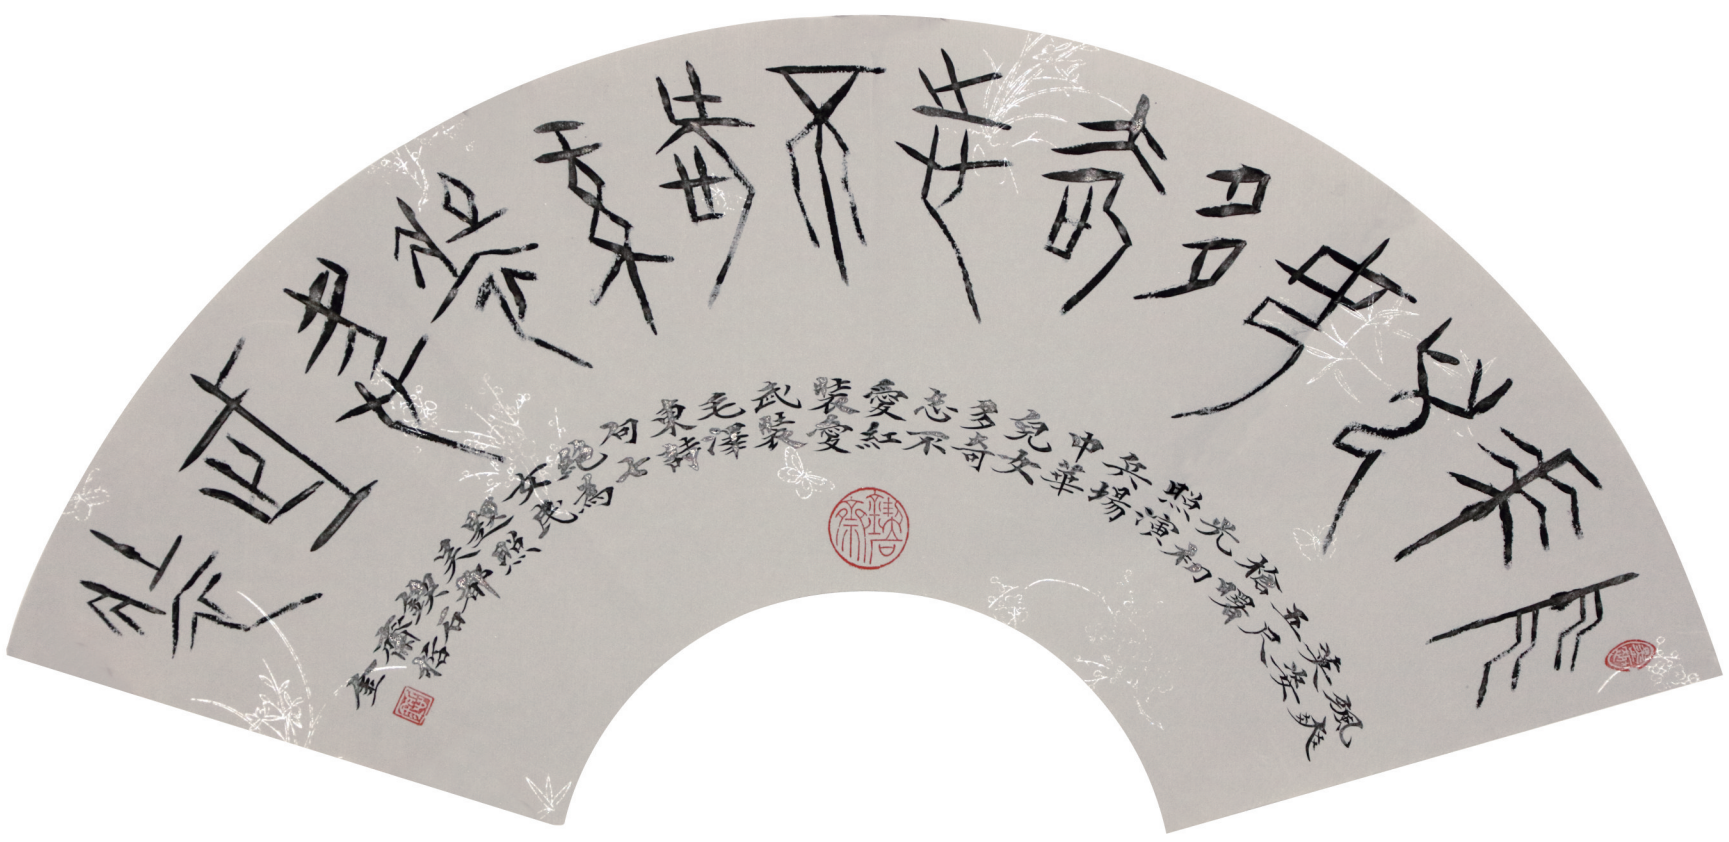 中華兒女多奇志不愛紅裝愛武裝
颯爽英姿五尺槍曙光初照演兵場中華兒女多奇志不愛紅裝愛武裝毛澤東詩詞七絕為女民題照癸卯鍥石齋